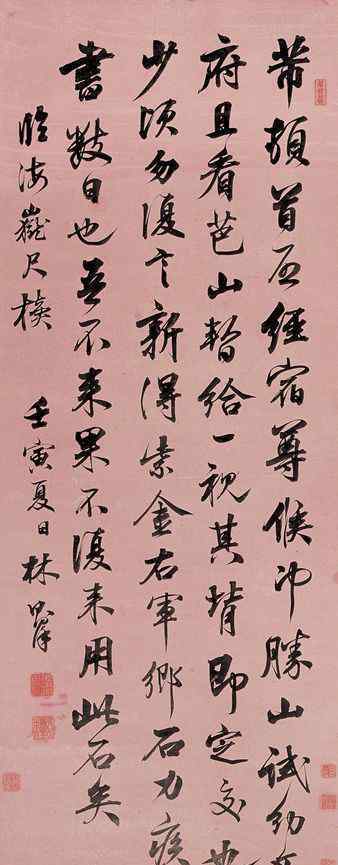 芾頓首啟經宿尊候冲勝山試納文
府且看芭山暫給一視其背即定交也
少頃勿復言新得紫金右軍鄉石力疾
書數日也吾不來果不復來用此石矣
臨海嶽尺牘 壬寅夏日林